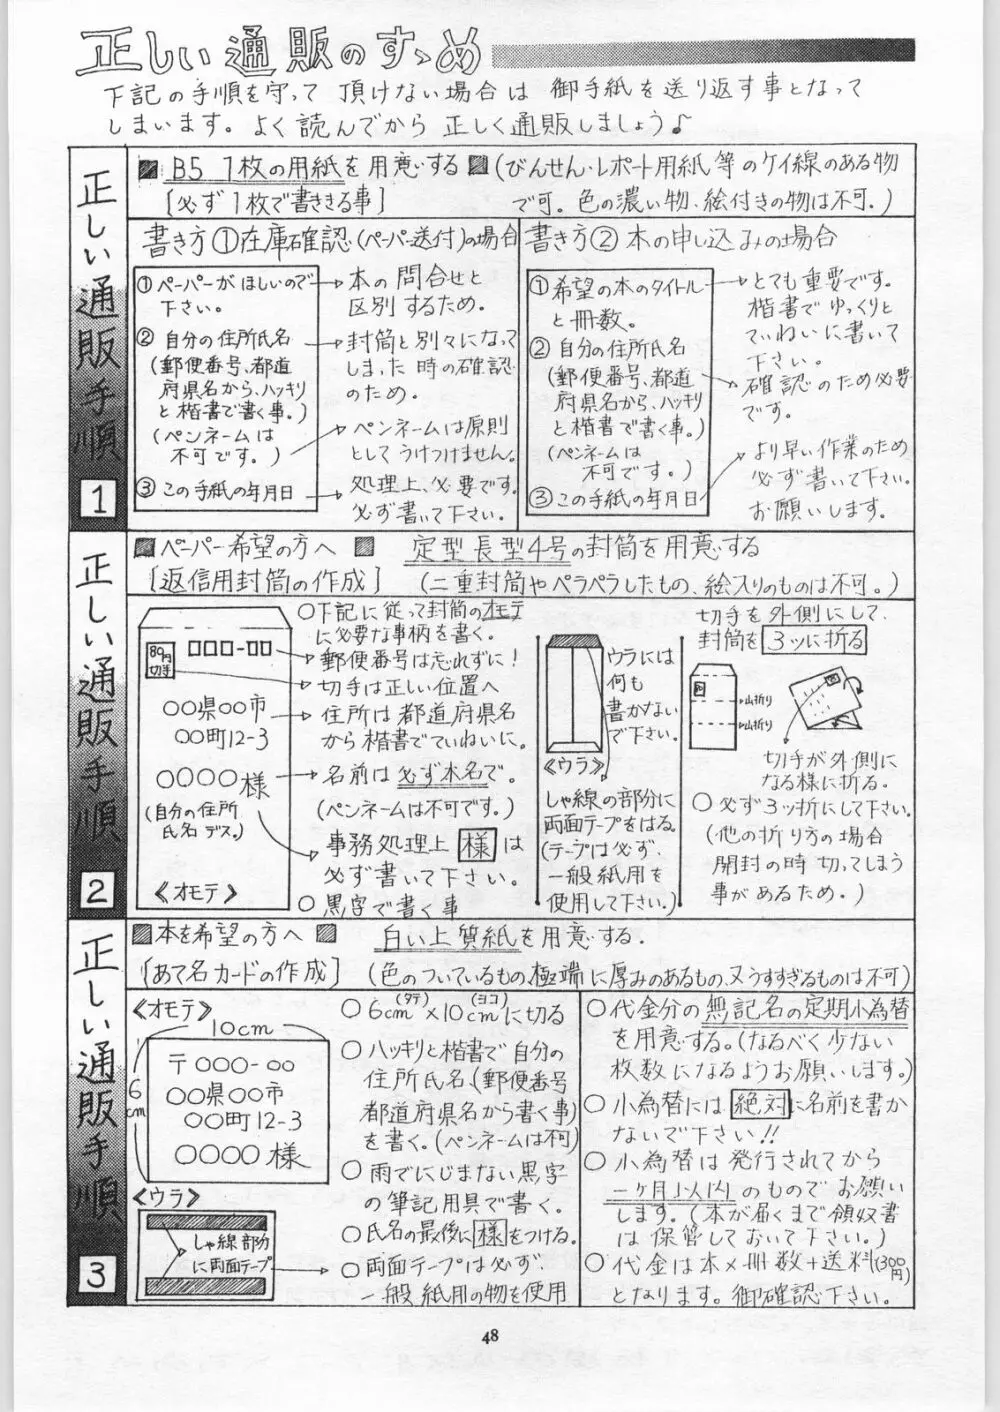 正しい通販のすゝめ
下記の手順を守って頂けない場合は御手紙を送り返す事となって
しまいます。よく読んでから正しく通販しましょう♪
正しい通販手順
1
B5 1枚の用紙を用意する
[必ず1枚で書ききる事]
(びんせん・レポート用紙等のケイ線のある物
で可。色の濃い物、絵付きの物は不可。)
書き方①在庫確認(ペーパー送付)の場合
①ペーパーがほしいので
下さい。
②自分の住所氏名
(郵便番号、都道
府県名から、ハッキリ
と楷書で書く事。)
(ペンネームは
不可です。)
③この手紙の年月日
本の問合せと
区別するため。
封筒と別々になって
しまった時の確認
のため。
ペンネームは原則
としてうけつけません。
処理上、必要です。
必ず書いて下さい。
書き方②本の申し込みの場合
①希望の本のタイトル
と冊数。
②自分の住所氏名
(郵便番号、都道
府県名から、ハッキリ
と楷書で書く事。)
(ペンネームは
不可です。)
③この手紙の年月日
とても重要です。
楷書でゆっくりと
ていねいに書いて
下さい。
確認のため必要
です。
より早い作業のため
必ず書いて下さい。
お願いします。
正しい通販手順
2
ペーパー希望の方へ
[返信用封筒の作成]
定型長型4号の封筒を用意する
(二重封筒やペラペラしたもの、絵入りのものは不可。)
80円
切手
□□□-□□
○○県○○市
○○町12-3
○○○○様
(自分の住所
氏名デス。)
《オモテ》
○下記に従って封筒のオモテ
に必要な事柄を書く。
郵便番号は忘れずに!
切手は正しい位置へ
住所は都道府県名
から楷書でていねいに。
名前は必ず本名で。
(ペンネームは不可です。)
事務処理上様は
必ず書いて下さい。
○黒字で書く事
ウラには
何も
書かない
で下さい。
《ウラ》
しゃ線の部分に
両面テープをはる。
(テープは必ず、
一般紙用を
使用して下さい。)
切手を外側にして、
封筒を3ツに折る
山折り
山折り
切手が外側に
なる様に折る。
○必ず3ッ折にして下さい。
(他の折り方の場合
開封の時切ってしまう
事があるため。)
正しい通販手順
3
本を希望の方へ
[あて名カードの作成]
白い上質紙を用意する.
(色のついているもの、極端に厚みのあるもの、又うすすぎるものは不可)
《オモテ》
10cm
6cm
〒○○○-○○
○○県○○市
○○町12-3
○○○○様
《ウラ》
しゃ線部分
に両面テープ
○6cm(タテ)×10cm(ヨコ)に切る
○ハッキリと楷書で自分の
住所氏名、(郵便番号
都道府県名から書く事)
を書く。(ペンネームは不可)
○雨でにじまない黒字
の筆記用具で書く。
○氏名の最後に様をつける。
○両面テープは必ず、
一般紙用の物を使用
○代金分の無記名の定期小為替
を用意する。(なるべく少ない
枚数になるようお願いします。)
○小為替には絶対に名前を書か
ないで下さい!!
○小為替は発行されてから
一ヶ月以内のものでお願い
します。(本が届くまで領収書
は保管しておいて下さい。)
○代金は本×冊数+送料(300円)
となります。御確認下さい。
48